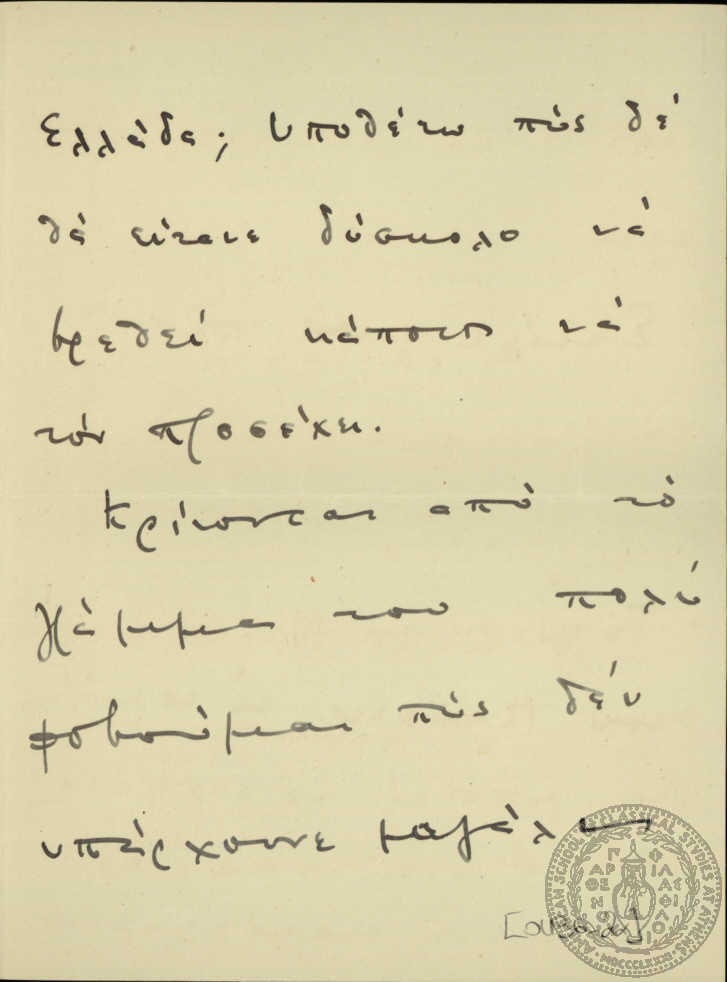 Ελλάδα; Υποθέτω πώς δέ
θά είτανε δύσκολο νά
βρεθεί κάποιος νά
τόν προσέχει.
Κρίνοντας από τό
γράμμα του πολύ
φοβούμαι πώς δέν
υπάρχουνε μεγάλες
AMERICAN SCHOOL OF CLASSICAL STUDIES AT ATHENS
ΠΑΡΘΕΝΟΥ ΦΙΛΑΣ ΦΙΛΟ
MDCCCLXXXI